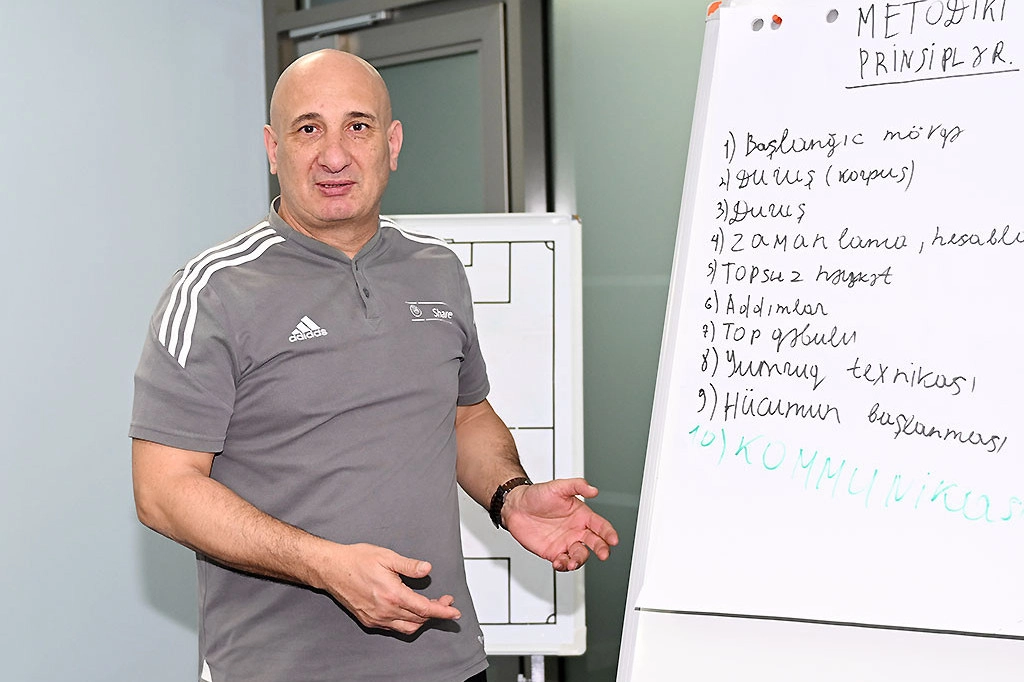 METODİKİ
PRİNSİPLƏR.
1) Başlanğıc mövqe
2) Duruş (korpus)
3) Duruş
4) Zamanlama, hesabla
5) Topsuz hərəkət
6) Addımlar
7) Top qəbulu
8) Yumruq texnikası
9) Hücumun başlanması
10) KOMMUNİKAS
adidas
Share